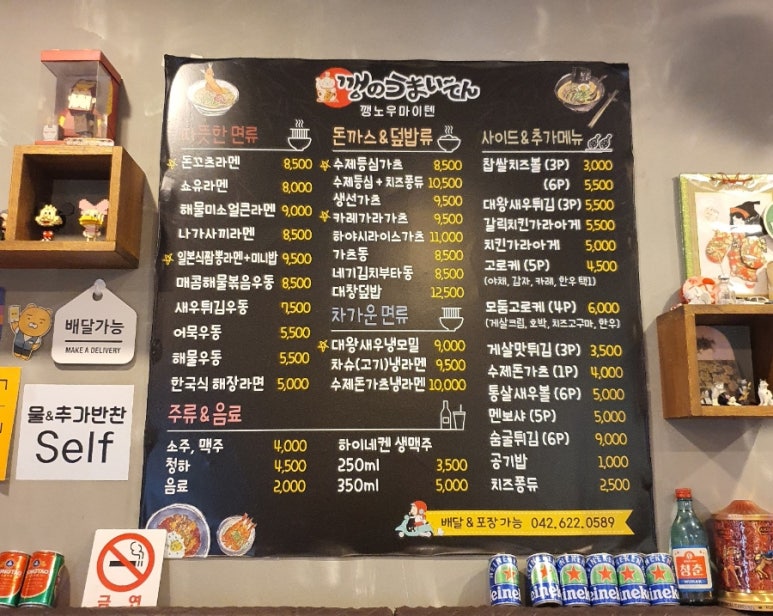 깽のうまいてん
깽노우마이텐
따뜻한 면류
돈꼬츠라멘 8,500
쇼유라멘 8,000
해물미소얼큰라멘 9,000
나가사끼라멘 8,500
일본식짬뽕라멘+미니밥 9,500
매콤해물볶음우동 8,500
새우튀김우동 7,500
어묵우동 5,500
해물우동 5,500
한국식 해장라면 5,000
돈까스&덮밥류
수제등심가츠 8,500
수제등심+치즈퐁듀 10,500
생선가츠 9,500
카레가라가츠 9,500
하야시라이스가츠 11,000
가츠동 8,500
네기김치부타동 8,500
대창덮밥 12,500
차가운 면류
대왕새우냉모밀 9,000
차슈(고기)냉라멘 9,500
수제돈가츠냉라멘 10,000
사이드&추가메뉴
찹쌀치즈볼 (3P) 3,000
(6P) 5,500
대왕새우튀김 (3P) 5,500
갈릭치킨가라아게 5,500
치킨가라아게 5,000
고로케 (5P) 4,500
(야채, 감자, 카레, 한우 택1)
모둠고로케 (4P) 6,000
(게살크림, 호박, 치즈고구마, 한우)
게살맛튀김 (3P) 3,500
수제돈가츠 (1P) 4,000
통살새우볼 (6P) 5,000
멘보샤 (5P) 5,000
숨굴튀김 (6P) 9,000
공기밥 1,000
치즈퐁듀 2,500
주류&음료
소주, 맥주 4,000
청하 4,500
음료 2,000
하이네켄 생맥주
250ml 3,500
350ml 5,000
배달&포장가능 042.622.0589
배달가능
MAKE A DELIVERY
물&추가반찬
Self
금 연
청춘